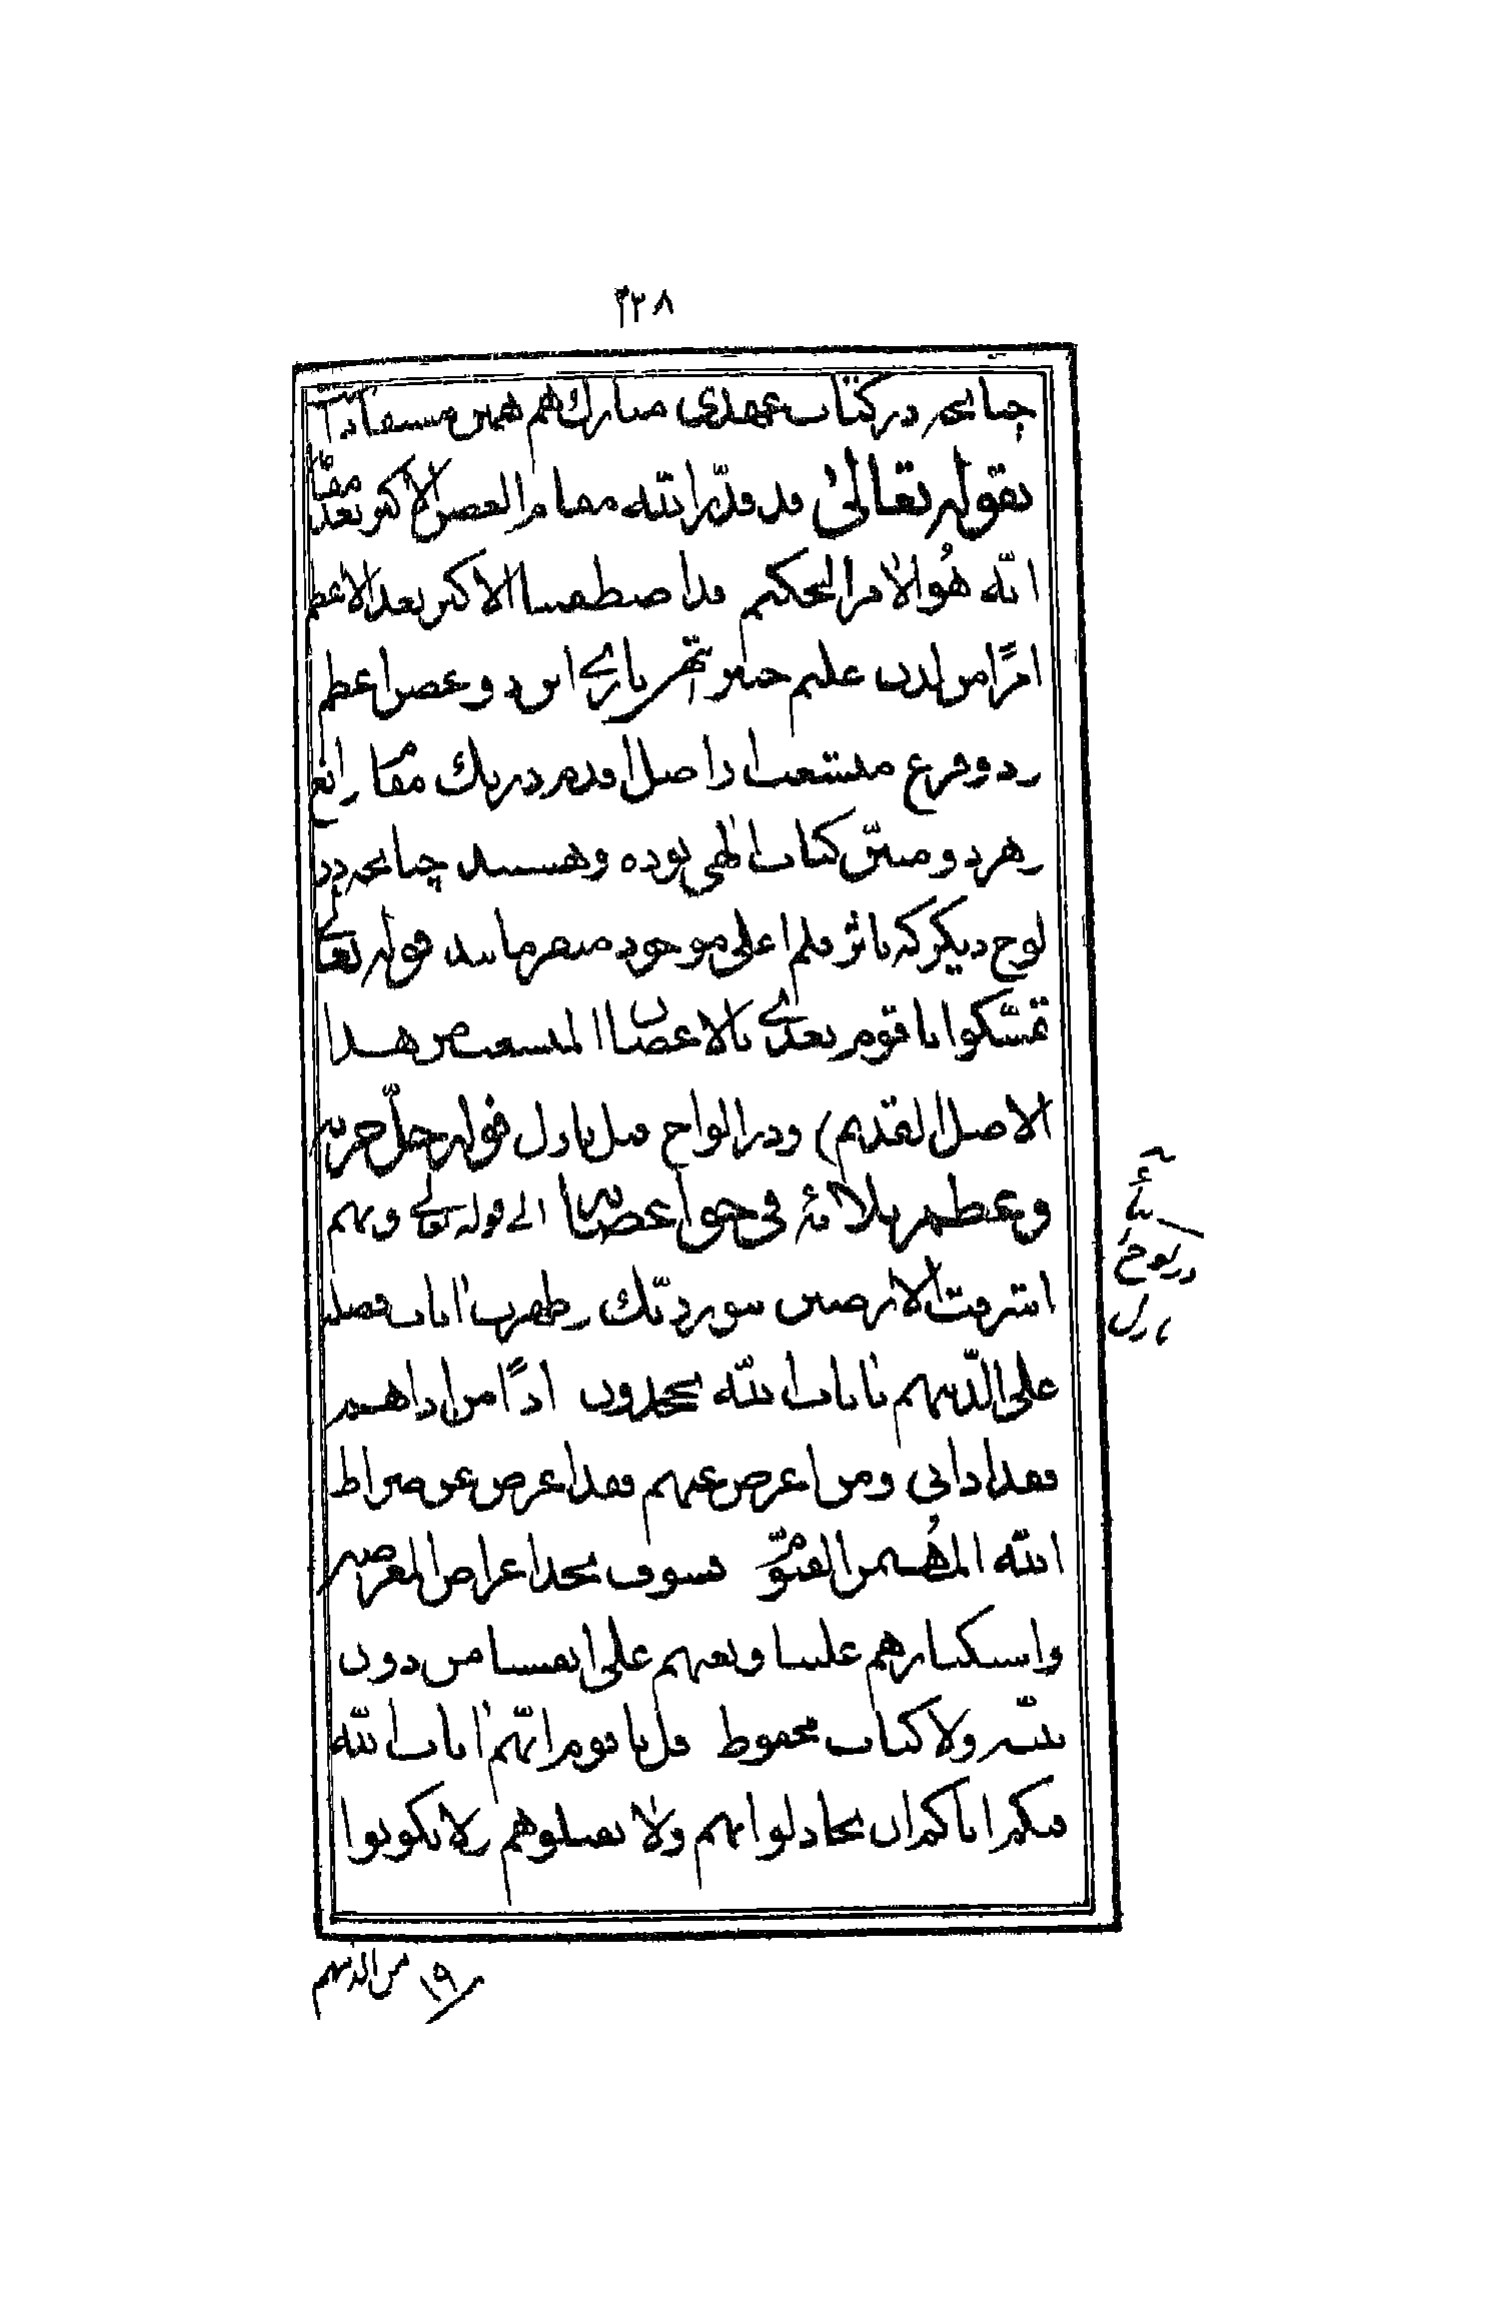 ۴۳۸
چنانچه در کتاب عهدی مبارک هم همین مستفاد است
بقوله تعالی قد قدّر الله مقام الغصن الاکبر بعد مقامه
انّه هُو الآمر الحکیم قد اصطفینا الاکبر بعد الاعظم
امرًا من لدن علیم خبیر باری این دو غصن اعظم
و دو فرع منشعب از اصل قدم در یک مقام
و هر دو متن کتاب الهی بوده و هستند چنانچه در
لوح دیگر که باثر قلم اعلی موجود میفرمایند قوله تعالی
تمسّکوا یا قوم بعدی بالاغصان المنشعب من هذا
الاصل القدیم) و در الواح قبل نازل قوله جلّ
و عظم فی حق اغصانه الی قوله تعالی و بهم
اشرقت الارضین بنور ربّک و ظهرت آیات فضله
علی الّذینهم بآیات الله یجحدون اذًا من اذاهم
فقد اذانی و من اعرض عنهم فقد اعرض عن صراط
الله المُهیمن القیّوم فسوف یجد اعراض المعرضین
و استکبارهم علینا و بغیهم علی انفسنا من دون
بیّنه ولا کتاب محفوظ قل یا قوم انّهم آیات الله
فیکم ایاکم ان تجادلوا بهم ولا تقتلوهم ولا تکونوا
من الذینهم
۱۹